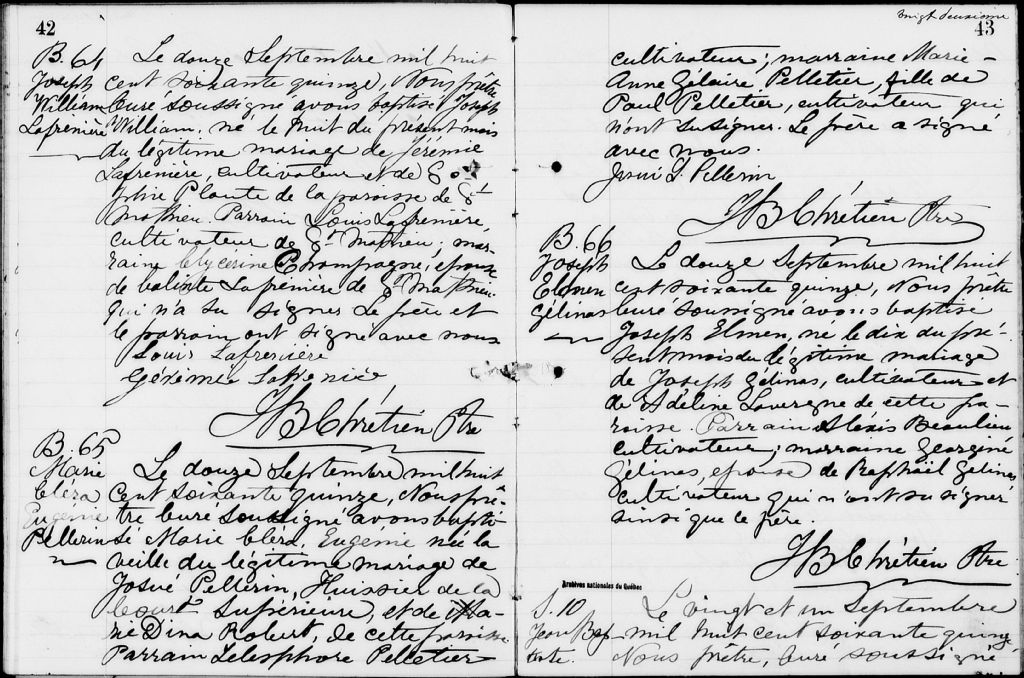 42
B. 64
Joseph
William
Lafrenière
Le douze Septembre mil huit
cent soixante quinze, Nous prêtre
Curé soussigné avons baptisé Joseph
William, né le huit du présent mois
du légitime mariage de Jérémie
Lafrenière, cultivateur et de
Julie Plante de la paroisse de St
Mathieu. Parrain Louis Lafrenière,
cultivateur de St Mathieu; mar-
raine Glycerine Champagne, epouse
de Lafrenière de St Mathieu
qui n'a su signer Le père et
le parrain ont signé avec nous
Louis Lafreniere
Gérémie
JB Chrétien Ptre
B. 65
Marie
Cléra
Eugenie
Pellerin
Le douze Septembre mil huit
cent soixante quinze, Nous prê-
tre Curé soussigné avons bapti-
sé Marie Cléra, Eugenie née la
veille du légitime mariage de
Josué Pellerin, Huissier de la
Court Supérieure, et de Ma-
rie Dina Robert, de cette paroisse
Parrain Telesphore Pelletier
vingt deuxieme
43
cultivateur; marraine Marie-
Anne Zélaire Pelletier, fille de
Paul Pelletier, cultivateur qui
n'ont su signer. Le père a signé
avec nous.
Josué L. Pellerin
JB Chrétien Ptre
B. 66
Joseph
Elmen
Gélinas
Le douze Septembre mil huit
cent soixante quinze, Nous prêtre
Curé soussigné avons baptisé
Joseph Elmen, né le dix du pré-
sent mois du légitime mariage
de Joseph Gélinas, cultivateur et
de Adéline Lavergne de cette pa-
roisse. Parrain Alexis Beaulieu
cultivateur; marraine Georginé
Gélinas, epouse de Raphaël Gélinas
cultivateur qui n'ont su signer
ainsi que le père.
JB Chrétien Ptre
Archives nationales du Québec
S. 10
Jean Bap-
tiste.
Le vingt et un Septembre
mil huit cent soixante quinze
Nous prêtre, Curé soussigné